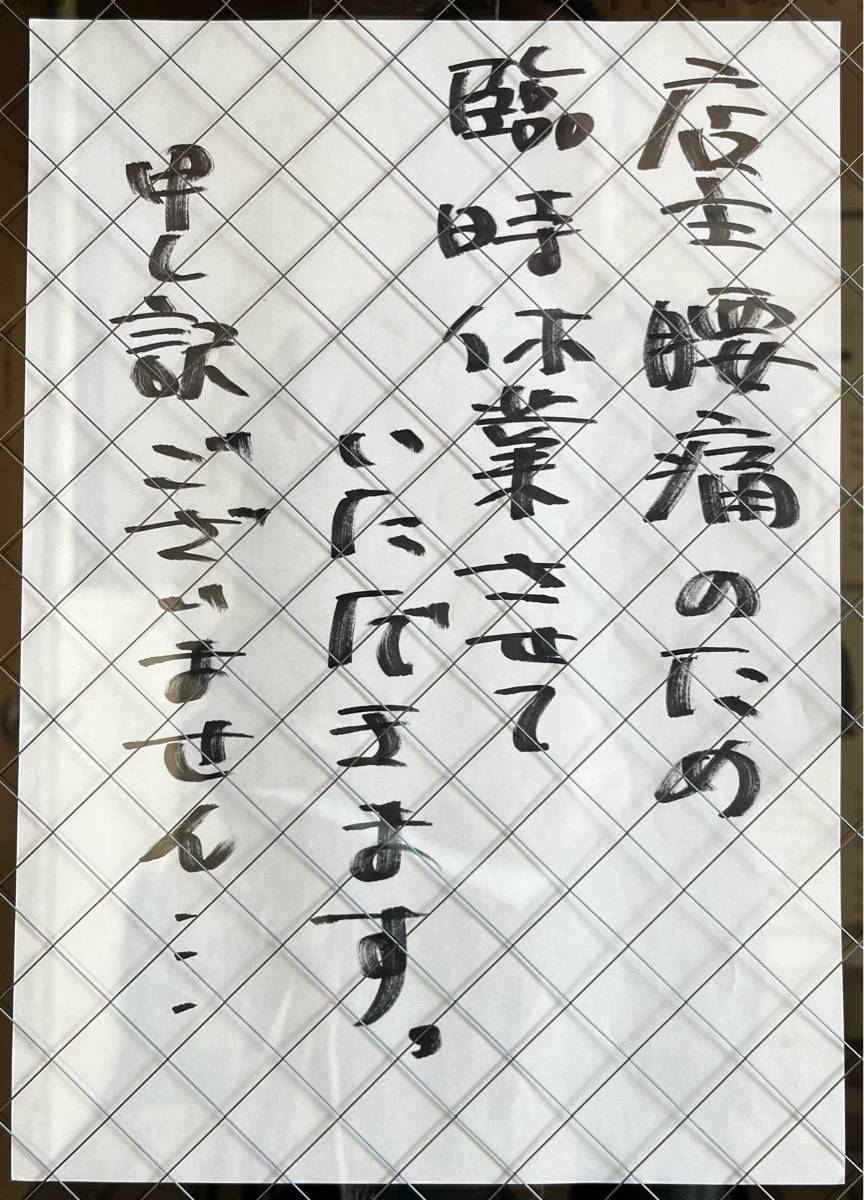 店主 腰痛のため
臨時休業させて
いただきます。
申し訳ございません…